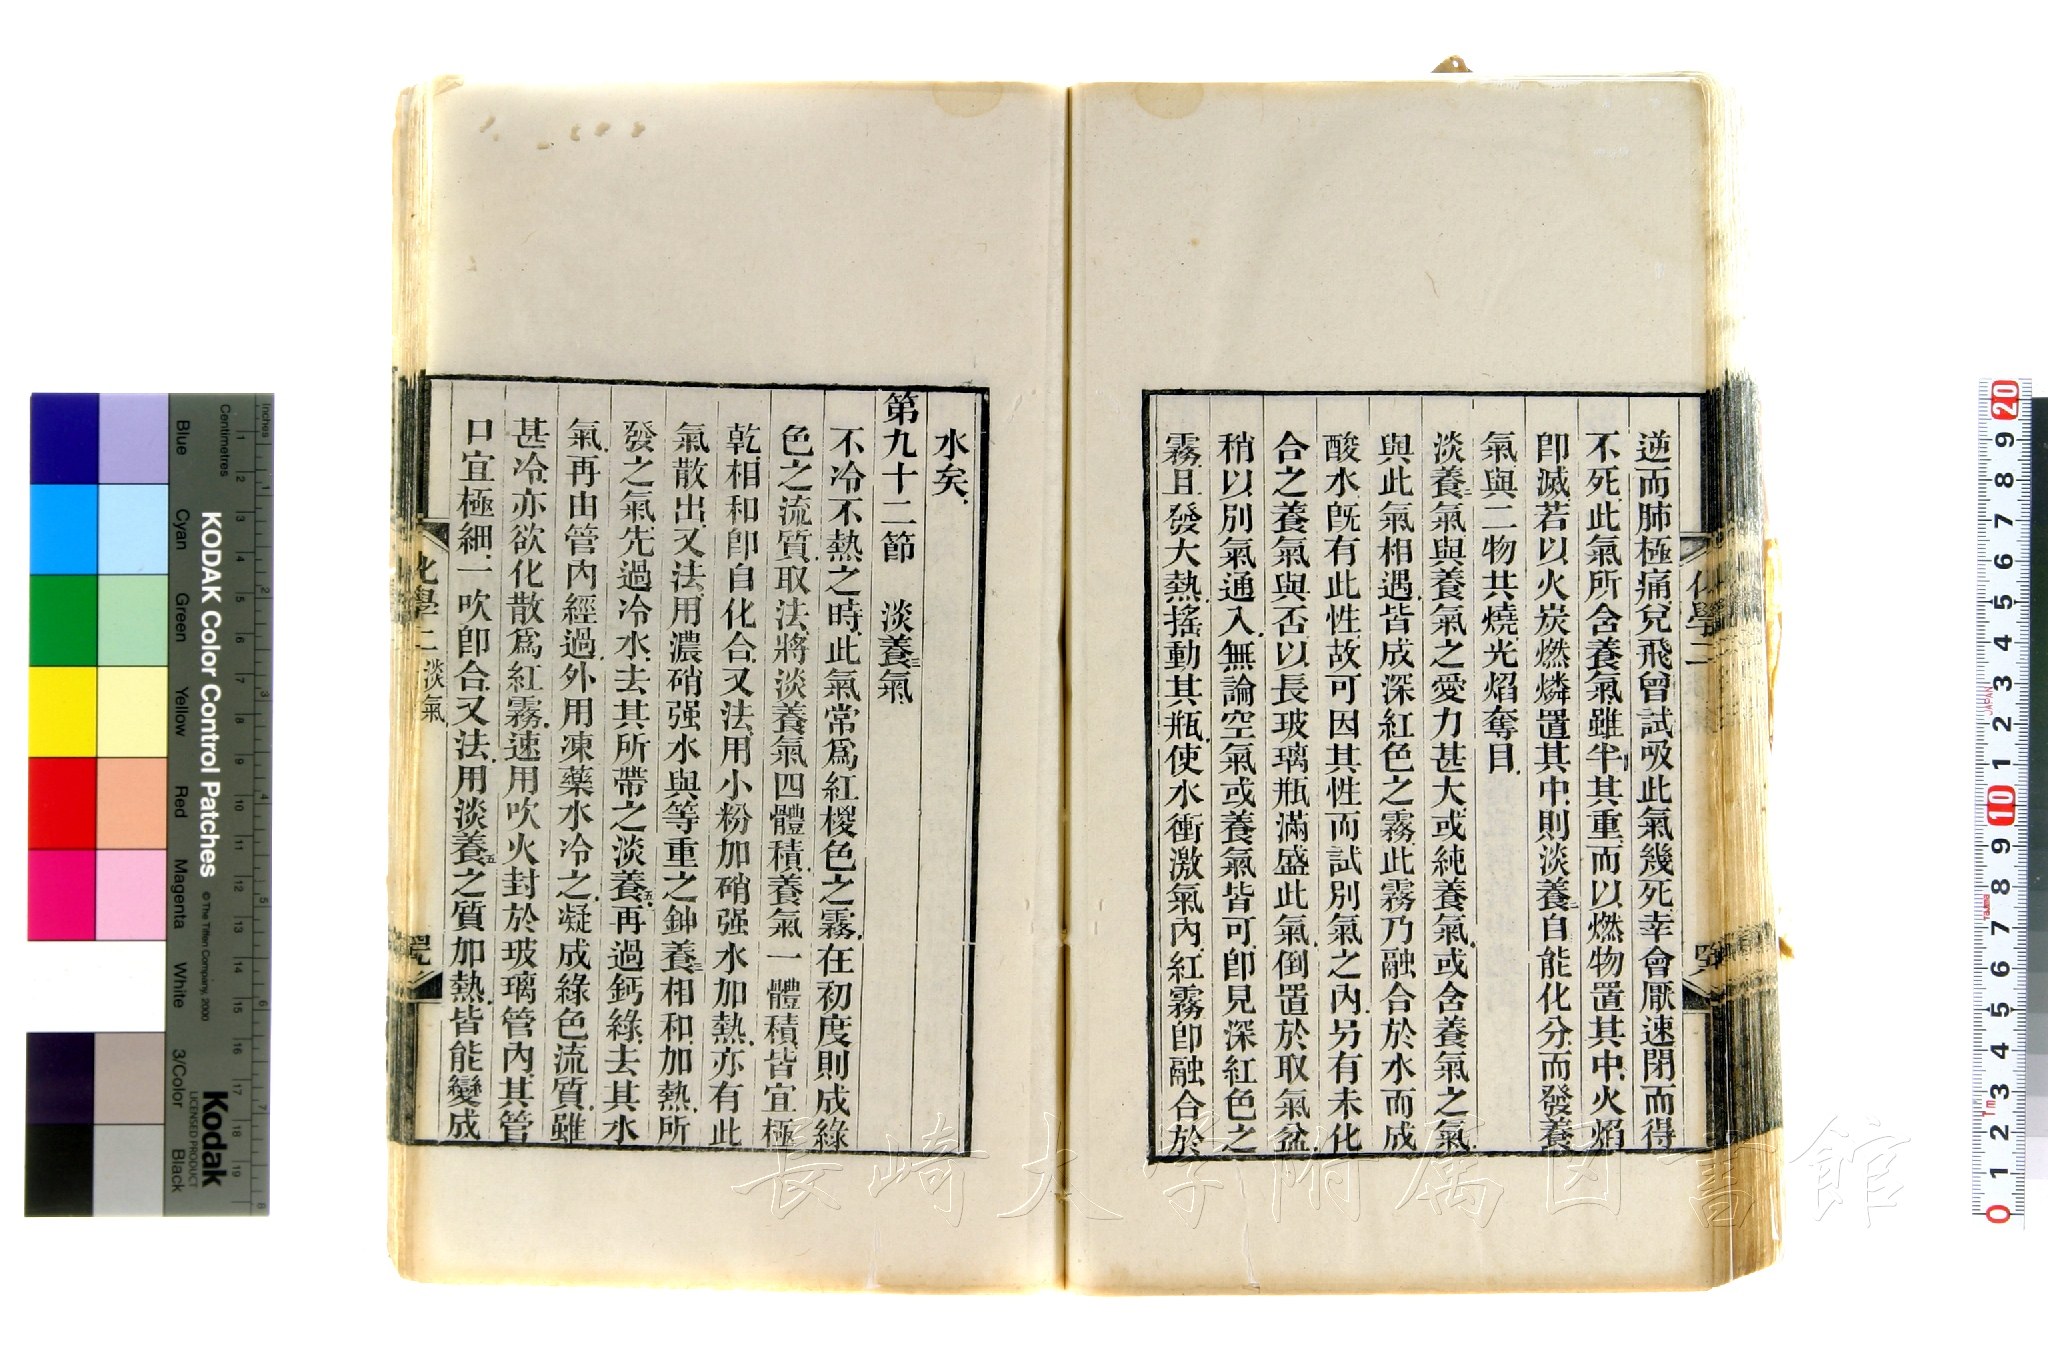 逆而肺極痛兒飛曾試吸此氣幾死幸會厭速閉而得
不死此氣所含養氣雖半其重而以燃物置其中火焰
卽滅若以火炭燃燐置其中則淡養二自能化分而發養
氣與二物共燒光焰奪目
淡養二氣與養氣之愛力甚大或純養氣或含養氣之氣
與此氣相遇皆成深紅色之霧此霧乃融合於水而成
酸水旣有此性故可因其性而試別氣之內另有未化
合之養氣與否以長玻璃瓶滿盛此氣倒置於取氣盆
稍以別氣通入無論空氣或養氣皆可卽見深紅色之
霧且發大熱搖動其瓶使水衝激氣內紅霧卽融合於
水矣
第九十二節 淡養三氣
不冷不熱之時此氣常爲紅椶色之霧在初度則成綠
色之流質取法將淡養氣四體積養氣一體積皆宜極
乾相和卽自化合又法用小粉加硝强水加熱亦有此
氣散出又法用濃硝强水與等重之鉮養三相和加熱所
發之氣先過冷水去其所帶之淡養五再過鈣綠去其水
氣再由管內經過外用凍藥水冷之凝成綠色流質雖
甚冷亦欲化散爲紅霧速用吹火封於玻璃管內其管
口宜極細一吹卽合又法用淡養五之質加熱皆能變成
化學二 淡氣
化學二
KODAK Color Control Patches
© The Tiffen Company, 2000
Kodak
LICENSED PRODUCT
Inches
Centimetres
Blue
Cyan
Green
Yellow
Red
Magenta
White
3/Color
Black
長崎大学附属図書館